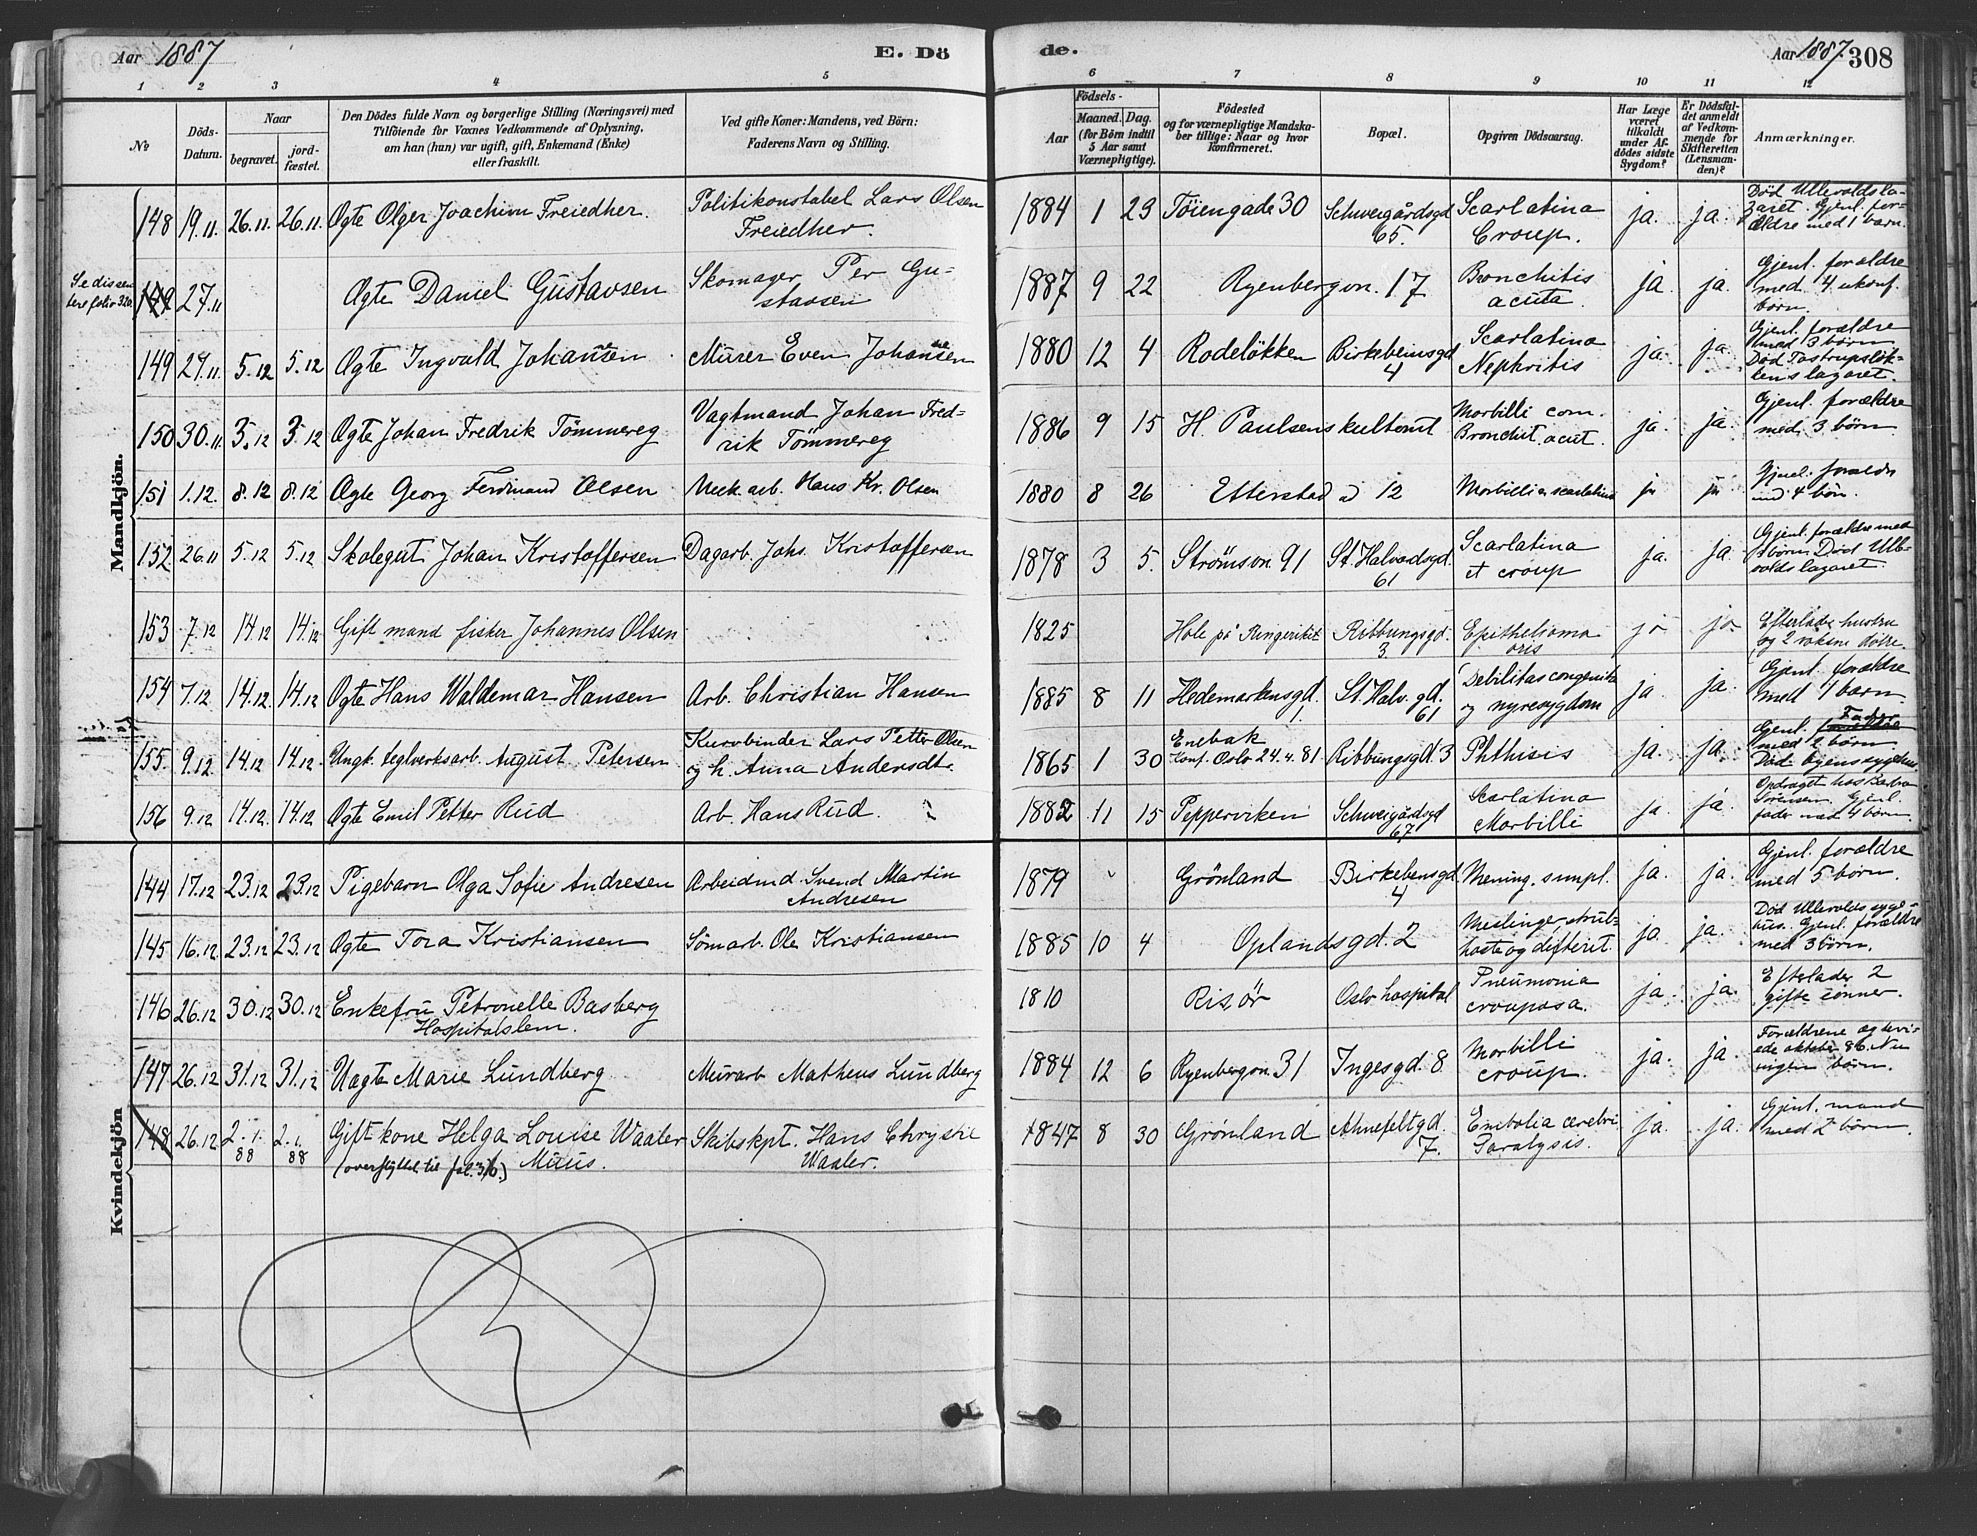 Aar 1887
E. Dö
de.
Aar 1887. 308
1 2 3 4 5 6 7 8 9 10 11 12
No
Döds-
Datum.
Naar
begravet.
jord-
fæstet.
Den Dödes fulde Navn og borgerlige Stilling (Næringsvei) med
Tilföiende for Voxnes Vedkommende af Oplysning,
om han (hun) var ugift, gift, Enkemand (Enke)
eller fraskilt.
Ved gifte Koner: Mandens, ved Börn:
Faderens Navn og Stilling.
Födsels-
Aar
Maaned.
Dag.
(for Börn indtil
5 Aar samt
Værnepligtige).
Födested
og for værnepligtige Mandska-
ber tillige: Naar og hvor
konfirmeret.
Bopæl.
Opgiven Dödsaarsag.
Har Læge
været
tilkaldt
under Af-
dödes sidste
Sygdom?
Er Dödsfal-
det anmeldt
af Vedkom-
mende for
Skifteretten
(Lensman-
den)?
Anmærkninger.
Mandkjön.
148 19.11. 26.11. 26.11. Ægte Olger Joachim Freiedher. Politikonstabel Lars Olsen
Freiedher. 1884 1 23 Töiengade 30 Schweigårdsgd
65. Scarlatina
Croup. ja. ja. Död Ullevolds la-
zaret. Gjenl. for-
ældre med 1 barn.
149 27.11 Ægte Daniel Gustavsen Skomager Per Gu-
stavsen 1887 9 22 Ryenbergvn. 17 Bronchitis
acuta. ja. ja. Gjenl. forældre
med 4 ukonf.
börn.
149 27.11. 5.12 5.12 Ægte Ingvald Johansen Murer Even Johansen 1880 12 4 Rodelökken Birkebeinsgd
4 Scarlatina
Nephritis ja. ja. Gjenl. forældre
med 3 börn.
Död Tostrupslök-
kens lazaret.
150 30.11 3.12 3.12 Ægte Johan Fredrik Tömmereg Vagtmand Johan Fred-
rik Tömmereg 1886 9 15 H. Paulsens kultomt Morbilli com.
Bronchit. acut. ja. ja. Gjenl. forældre
med 3 börn.
151 1.12. 8.12 8.12 Ægte Georg Ferdinand Olsen Mek. arb. Hans Kr. Olsen 1880 8 26 Etterstad 12 Morbilli scarlatina ja ja Gjenl. forældre
med 4 börn.
152 26.11 5.12 5.12 Skolegut Johan Kristoffersen Dagarb. Johs. Kristoffersen 1878 3 5. Strömsvn. 91 St. Halvardsgd.
61 Scarlatina
et croup ja. ja. Gjenl. forældre med
börn. Död Ulle-
volds lazaret.
153 7.12 14.12 14.12 Gift mand fisker Johannes Olsen 1825 Hole på Ringerike Ribbungsgd.
3. Epithelioma
oris ja ja Efterlader hustru
og 2 voksne dötre.
154 7.12. 14.12. 14.12 Ægte Hans Waldemar Hansen Arb. Christian Hansen 1885 8 11 Hedemarkensgd.
1. St. Halv. gd.
61 Debilitas congenita
og nyresygdom ja. ja. Gjenl. forældre
med 1 barn.
155 9.12 14.12 14.12. Ungk. teglverksarb. August Petersen Kurvbinder Lars Petter Olsen
og h. Anna Andersdtr. 1865 1 30 Enebak
Conf. Oslo 24.4.81 Ribbungsgd. 3 Phthisis ja. ja. Gjenl. Fader
med 2 börn.
Död Byens sygehus
156 9.12 14.12. 14.12 Ægte Emil Petter Rud Arb. Hans Rud. 1882 11 15 Pepperviken Schweigårdsgd
67 Scarlatina
Morbilli ja ja. Opdraget hos Barbra
Sörensen. Gjenl.
fader med 4 börn
Kvindekjön
144 17.12 23.12 23.12 Pigebarn Olga Sofie Andresen Arbeidmd. Svend Martin
Andresen 1879 Grönland Birkebensgd.
4 Mening. simpl. ja. ja. Gjenl. forældre
med 5 börn.
145 16.12. 23.12 23.12 Ægte Tora Kristiansen Sömarb. Ole Kristiansen 1885 10 4 Oplandsgd. 2 Meslinger, strub-
hoste og difterit. ja. ja. Död Ullevolds syge-
hus. Gjenl. forældre
med 3 börn.
146 26.12 30.12 30.12 Enkefru Petronelle Basberg
Hospitalslem. 1810 Risör Oslo hospital Pneumonia
crouposa. ja. ja. Efterlader 2
gifte sönner.
147 26.12 31.12 31.12 Uægte Marie Lundberg Murarb Matheus Lundberg 1884 12 6 Ryenbergvn. 31 Ingesgd. 8 Morbilli
croup. ja. ja. Forældrene
oktober 86. Nu
ingen börn.
148 26.12 2.1.88 2.1.88 Gift kone Helga Louise Waaler
(overflyttet til fol. 316.) Muus. Skibskpt. Hans Chrystie
Waaler. 1847 8 30 Grönland Ahnefeltgd.
7. Embolia cerebri
Paralysis. ja. ja. Gjenl. mand
med 2 börn.